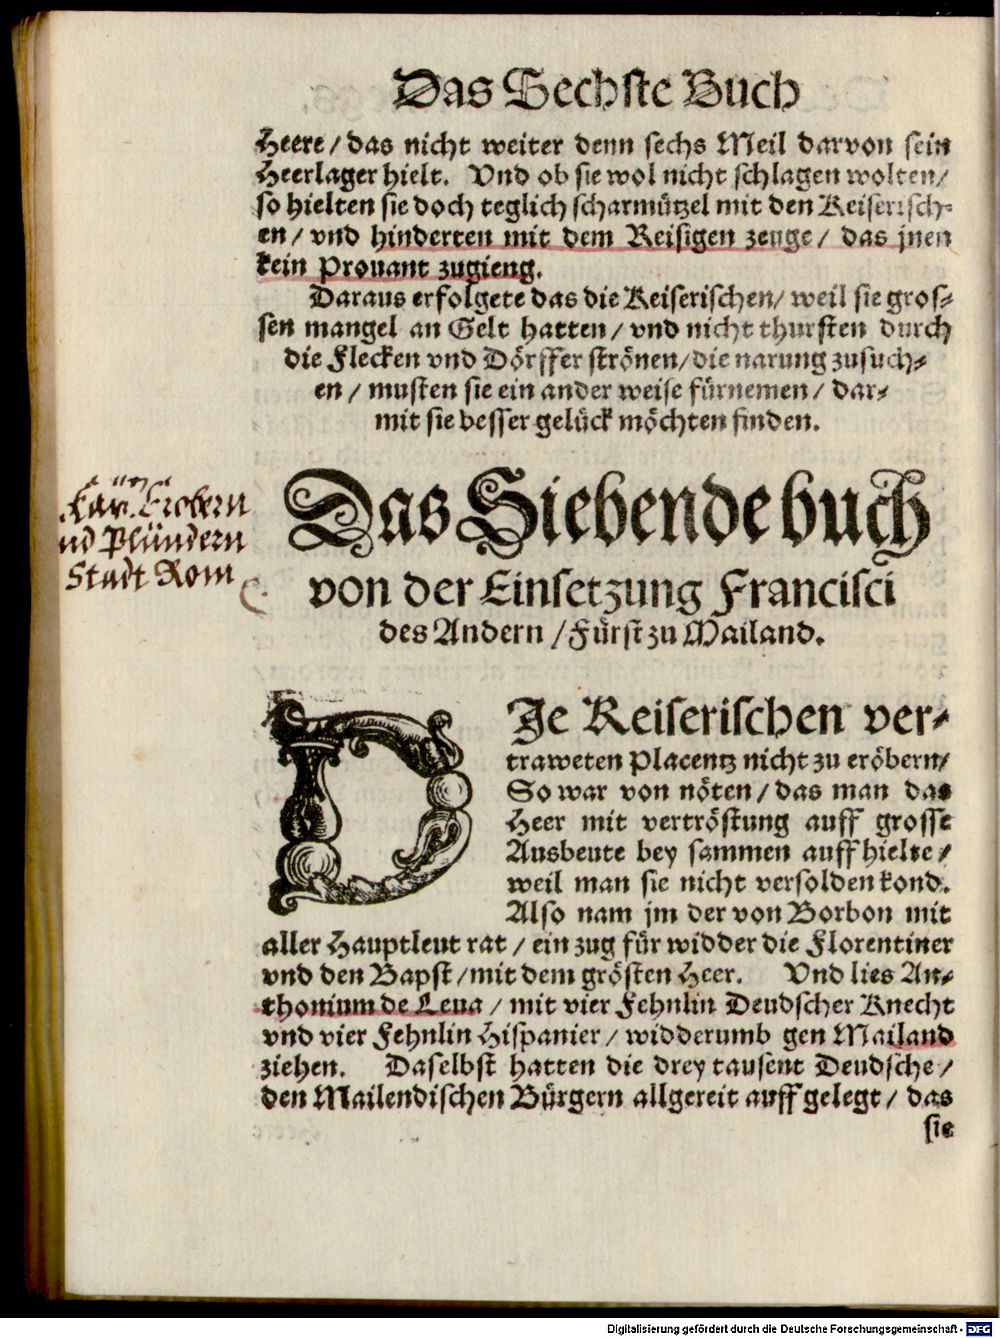 Das Sechste Buch
Heere / das nicht weiter denn sechs Meil darvon sein
Heerlager hielt. Vnd ob sie wol nicht schlagen wolten /
so hielten sie doch teglich scharmützel mit den Keiserisch-
en / vnd hinderten mit dem Reisigen zeuge / das jnen
kein Prouant zugieng.
Daraus erfolgete das die Keiserischen / weil sie gros-
sen mangel an Gelt hatten / vnd nicht thursten durch
die Flecken vnd Dörffer strönen / die narung zusuch-
en / musten sie ein ander weise fürnemen / dar-
mit sie besser gelück möchten finden.
Erobern
nd Plündern
Stadt Rom
Das Siebende buch
von der Einsetzung Francisci
des Andern / Fürst zu Mailand.
DJe Keiserischen ver-
traweten Placentz nicht zu eröbern /
So war von nöten / das man das
Heer mit vertröstung auff grosse
Ausbeute bey sammen auff hielte /
weil man sie nicht versolden kond.
Also nam jm der von Borbon mit
aller Hauptleut rat / ein zug für widder die Florentiner
vnd den Bapst / mit dem grösten Heer. Vnd lies An-
thonium de Leua / mit vier Fehnlin Deudscher Knecht
vnd vier Fehnlin Hispanier / widderumb gen Mailand
ziehen. Daselbst hatten die drey tausent Deudsche /
den Mailendischen Bürgern allgereit auff gelegt / das
sie
Digitalisierung gefördert durch die Deutsche Forschungsgemeinschaft - DFG